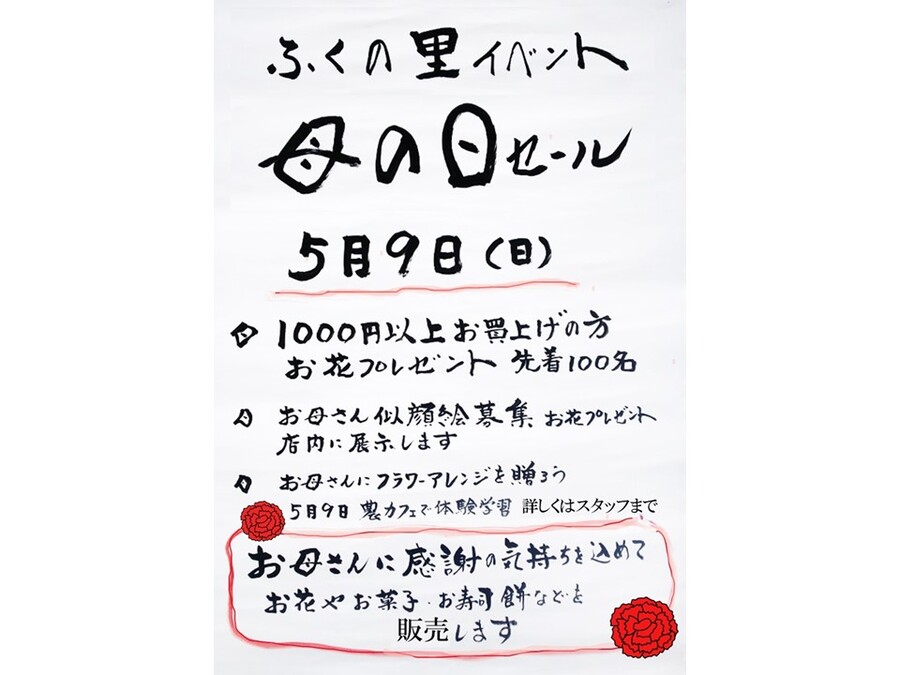 ふくの里イベント
母の日セール
5月9日(日)
1000円以上お買上げの方
お花プレゼント 先着100名
お母さん似顔絵募集 お花プレゼント
店内に展示します
お母さんにフラワーアレンジを贈ろう
5月9日 農カフェで体験学習 詳しくはスタッフまで
お母さんに感謝の気持ちを込めて
お花やお菓子・お寿司 餅などを
販売します